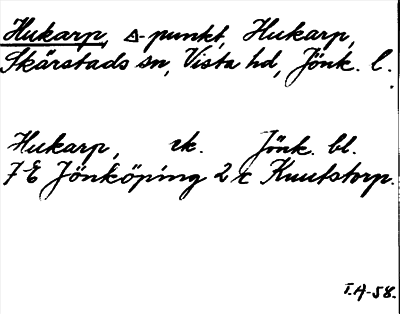 Hukarp, △-punkt, Hukarp,
Skärstads sn, Vista hd, Jönk. l.
Hukarp, rk. Jönk. bl.
7 E Jönköping 2 c Knutstorp.
T.H-58.